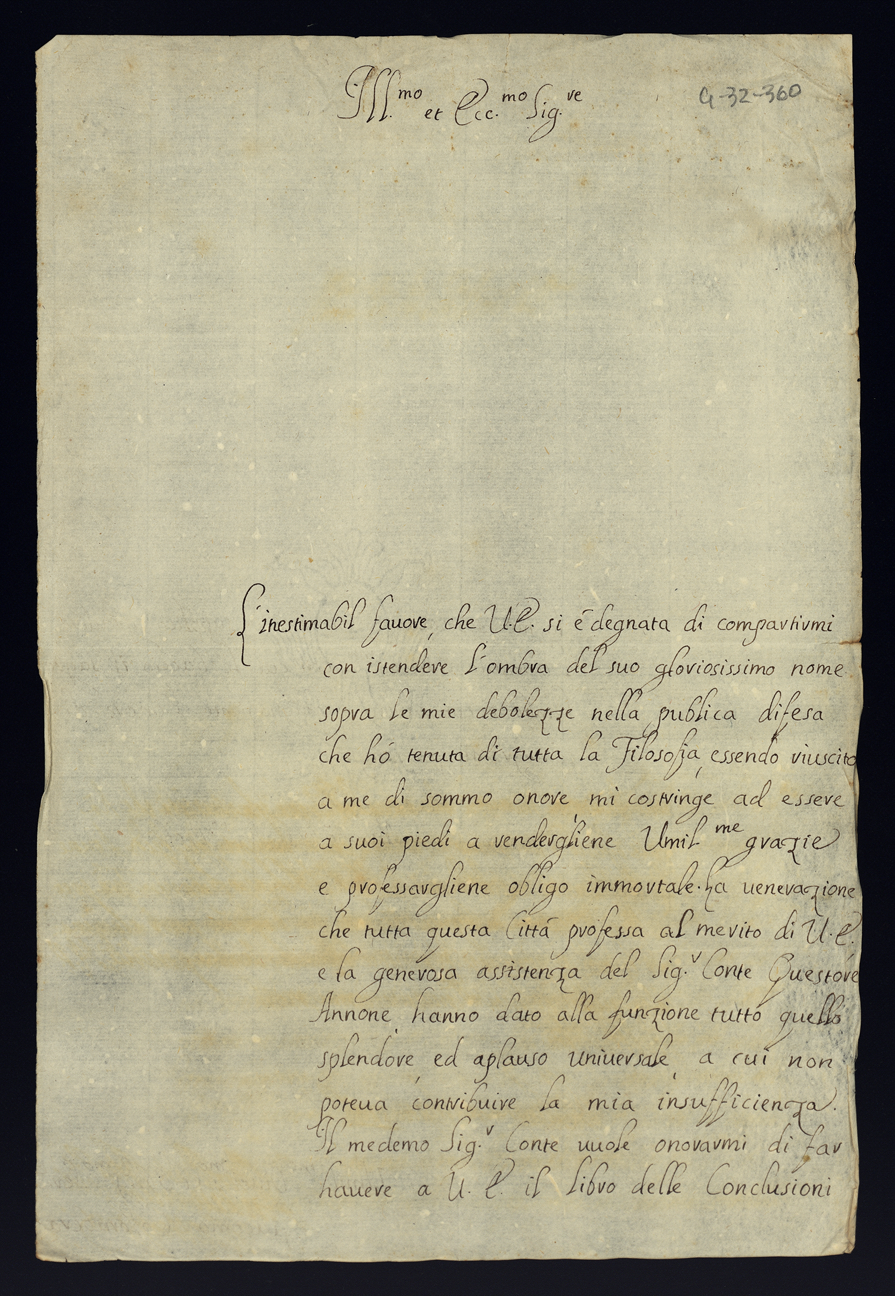 Ill.mo et Ecc.mo Sig.re
G-32-360
L'inestimabil fauore, che U.E. si é degnata di compartirmi
con istendere l'ombra del suo gloriosissimo nome
sopra le mie debolezze nella publica difesa
che hó tenuta di tutta la Filosofia, essendo riuscito
a me di sommo onore mi costringe ad essere
a suoi piedi a rendergliene Umil.me grazie
e professargliene obligo immortale. La uenerazione
che tutta questa Cittá professa al merito di U.E.
e la generosa assistenza del Sig.r Conte Questore
Annone, hanno dato alla funzione tutto quello
splendore, ed aplauso uniuersale, a cui non
poteua contribuire la mia insufficienza.
Il medemo Sig.r Conte uuole onorarmi di far
hauere a U.E. il libro delle Conclusioni